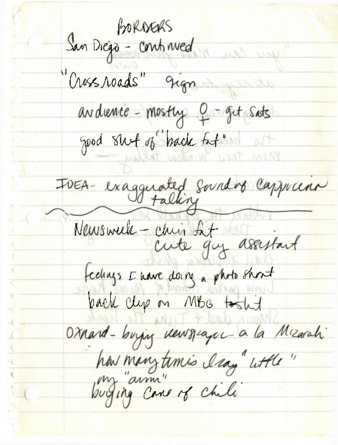 BORDERS
San Diego - continued
"Crossroads" sign
audience - mostly ♀ - get sats
good stuff of "back fat"
IDEA - exaggerated sound of cappuccino
talking
Newsweek - chin fat
cute guy assistant
feelings I have doing a photo shoot
back clip on MBG
Oxnard - buying newspaper - a la Mizrahi
how many times I say "little"
my "arms"
buying cans of chili